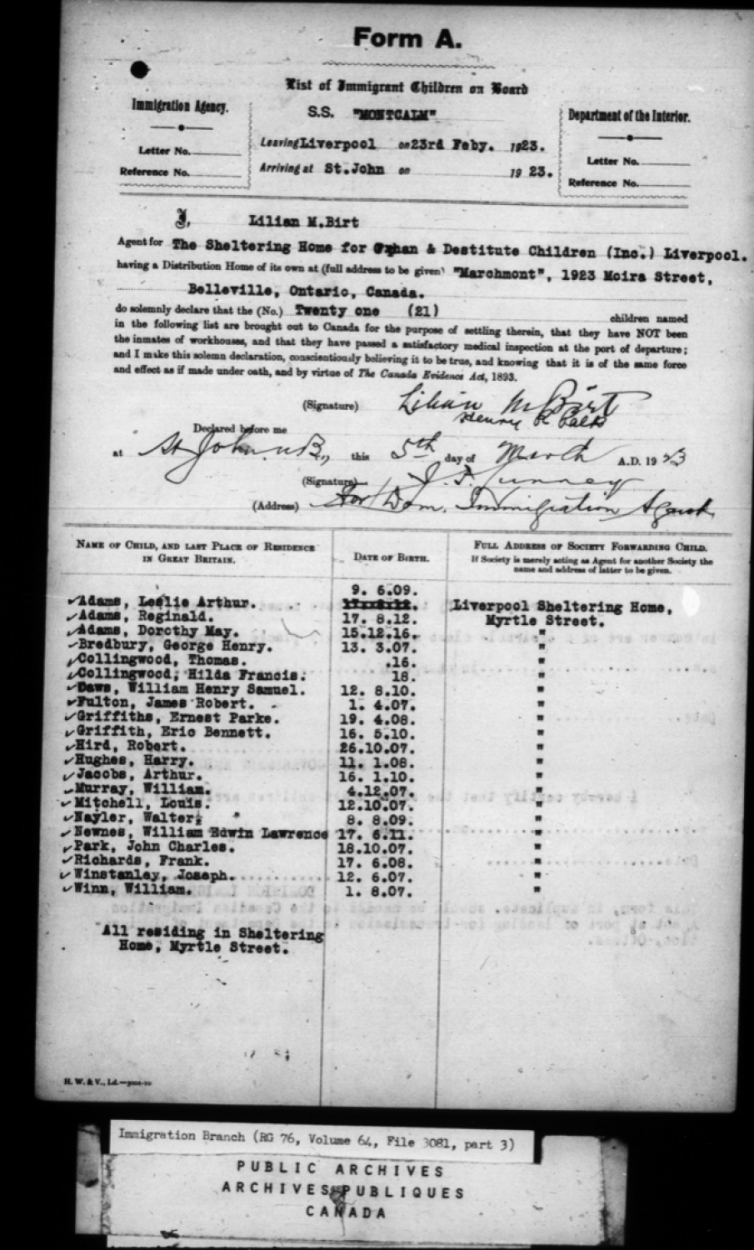 Form A.
List of Immigrant Children on Board
Immigration Agency.
S.S. "MONTCALM"
Department of the Interior.
Letter No.
Leaving Liverpool on 23rd Feby. 1923.
Letter No.
Reference No.
Arriving at St.John on 19 23.
Reference No.
I, Lilian M.Birt
Agent for The Sheltering Home for Orphan & Destitute Children (Inc.) Liverpool.
having a Distribution Home of its own at (full address to be given) "Marchmont", 1923 Moira Street,
Belleville, Ontario, Canada.
do solemnly declare that the (No.) Twenty one (21) children named
in the following list are brought out to Canada for the purpose of settling therein, that they have NOT been
the inmates of workhouses, and that they have passed a satisfactory medical inspection at the port of departure;
and I make this solemn declaration, conscientiously believing it to be true, and knowing that it is of the same force
and effect as if made under oath, and by virtue of The Canada Evidence Act, 1893.
(Signature) Lilian M Birt
Henry
Declared before me
at St John NB, this 5th day of March A.D. 19 23
(Signature)
(Address) for Dom. Immigration Agent
NAME OF CHILD, AND LAST PLACE OF RESIDENCE IN GREAT BRITAIN.
DATE OF BIRTH.
FULL ADDRESS OF SOCIETY FORWARDING CHILD.
If Society is merely acting as Agent for another Society the name and address of latter to be given.
9. 6.09.
Adams, Leslie Arthur. Liverpool Sheltering Home,
Adams, Reginald. 17. 8.12. Myrtle Street.
Adams, Dorothy May. 15.12.16. "
Bredbury, George Henry. 13. 3.07. "
Collingwood, Thomas. .16. "
Collingwood, Hilda Francis. 18. "
Daws, William Henry Samuel. 12. 8.10. "
Fulton, James Robert. 1. 4.07. "
Griffiths, Ernest Parke. 19. 4.08. "
Griffith, Eric Bennett. 16. 5.10. "
Hird, Robert. 26.10.07. "
Hughes, Harry. 11. 1.08. "
Jacobs, Arthur. 16. 1.10. "
Murray, William. 4.12.07. "
Mitchell, Louis. 12.10.07. "
Nayler, Walter. 8. 8.09. "
Newnes, William Edwin Lawrence 17. 6.11. "
Park, John Charles. 18.10.07. "
Richards, Frank. 17. 6.08. "
Winstanley, Joseph. 12. 6.07. "
Winn, William. 1. 8.07. "
All residing in Sheltering
Home, Myrtle Street.
H. W. & V., Ld.
Immigration Branch (RG 76, Volume 64, File 3081, part 3)
PUBLIC ARCHIVES
ARCHIVES PUBLIQUES
CANADA